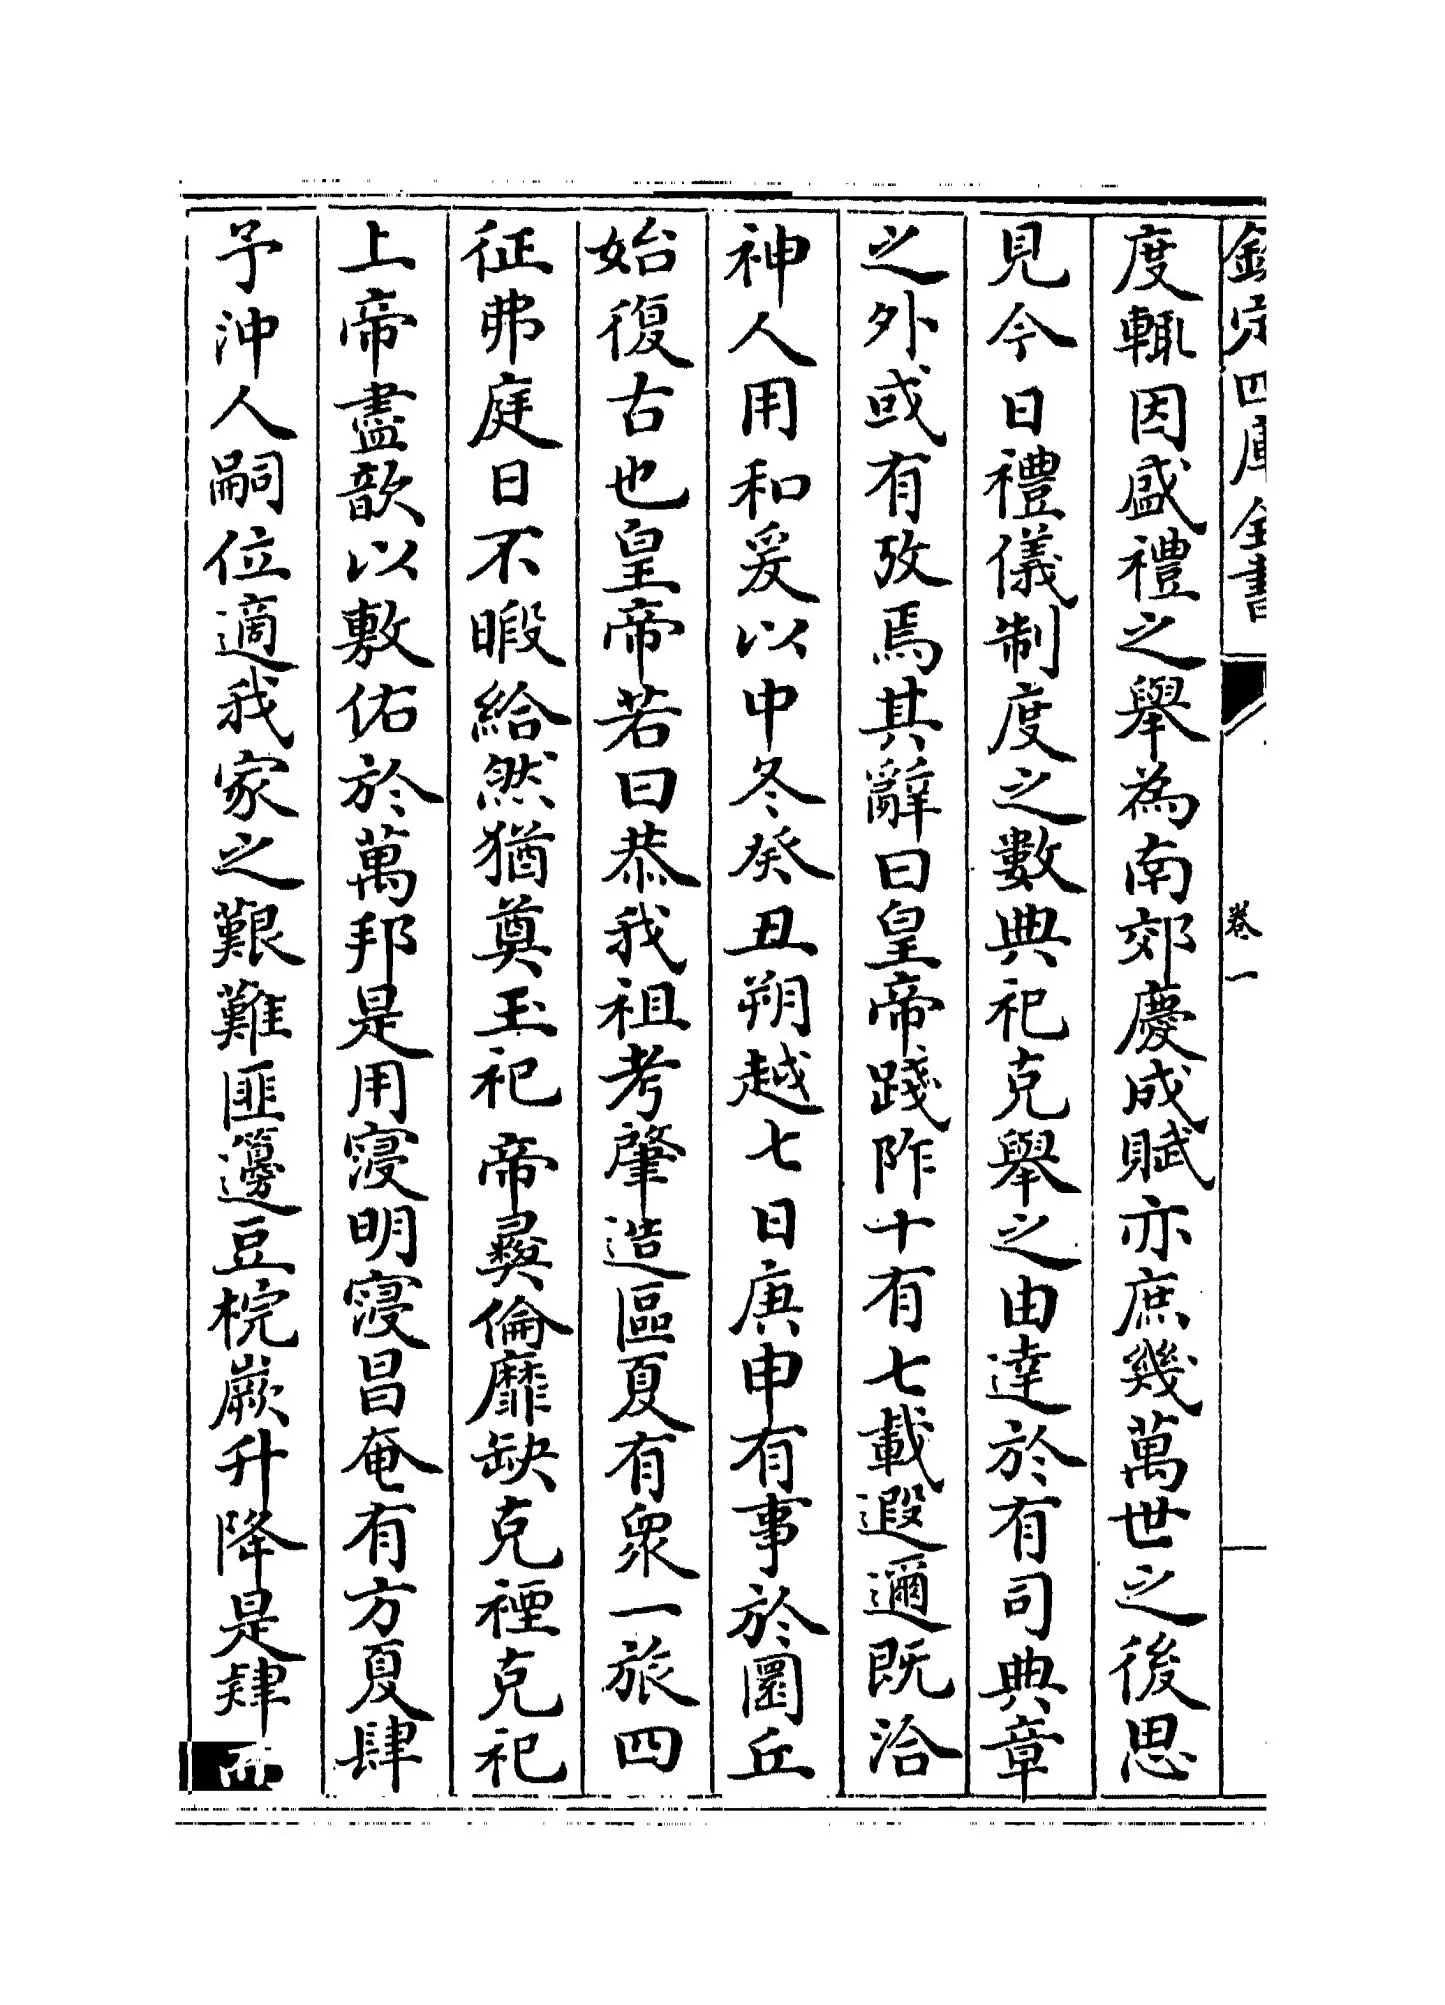 欽定四庫全書
卷一
度輒因盛禮之舉為南郊慶成賦亦庶幾萬世之後思
見今日禮儀制度之數典祀克舉之由達於有司典章
之外或有攷焉其辭曰皇帝踐阼十有七載遐邇既洽
神人用和爰以中冬癸丑朔越七日庚申有事於圜丘
始復古也皇帝若曰恭我祖考肇造區夏有眾一旅四
征弗庭日不暇給然猶奠玉祀帝彞倫靡缺克禋克祀
上帝盡歆以敷佑於萬邦是用寖明寖昌奄有方夏肆
予沖人嗣位適我家之艱難匪籩豆梡嶡升降是肄